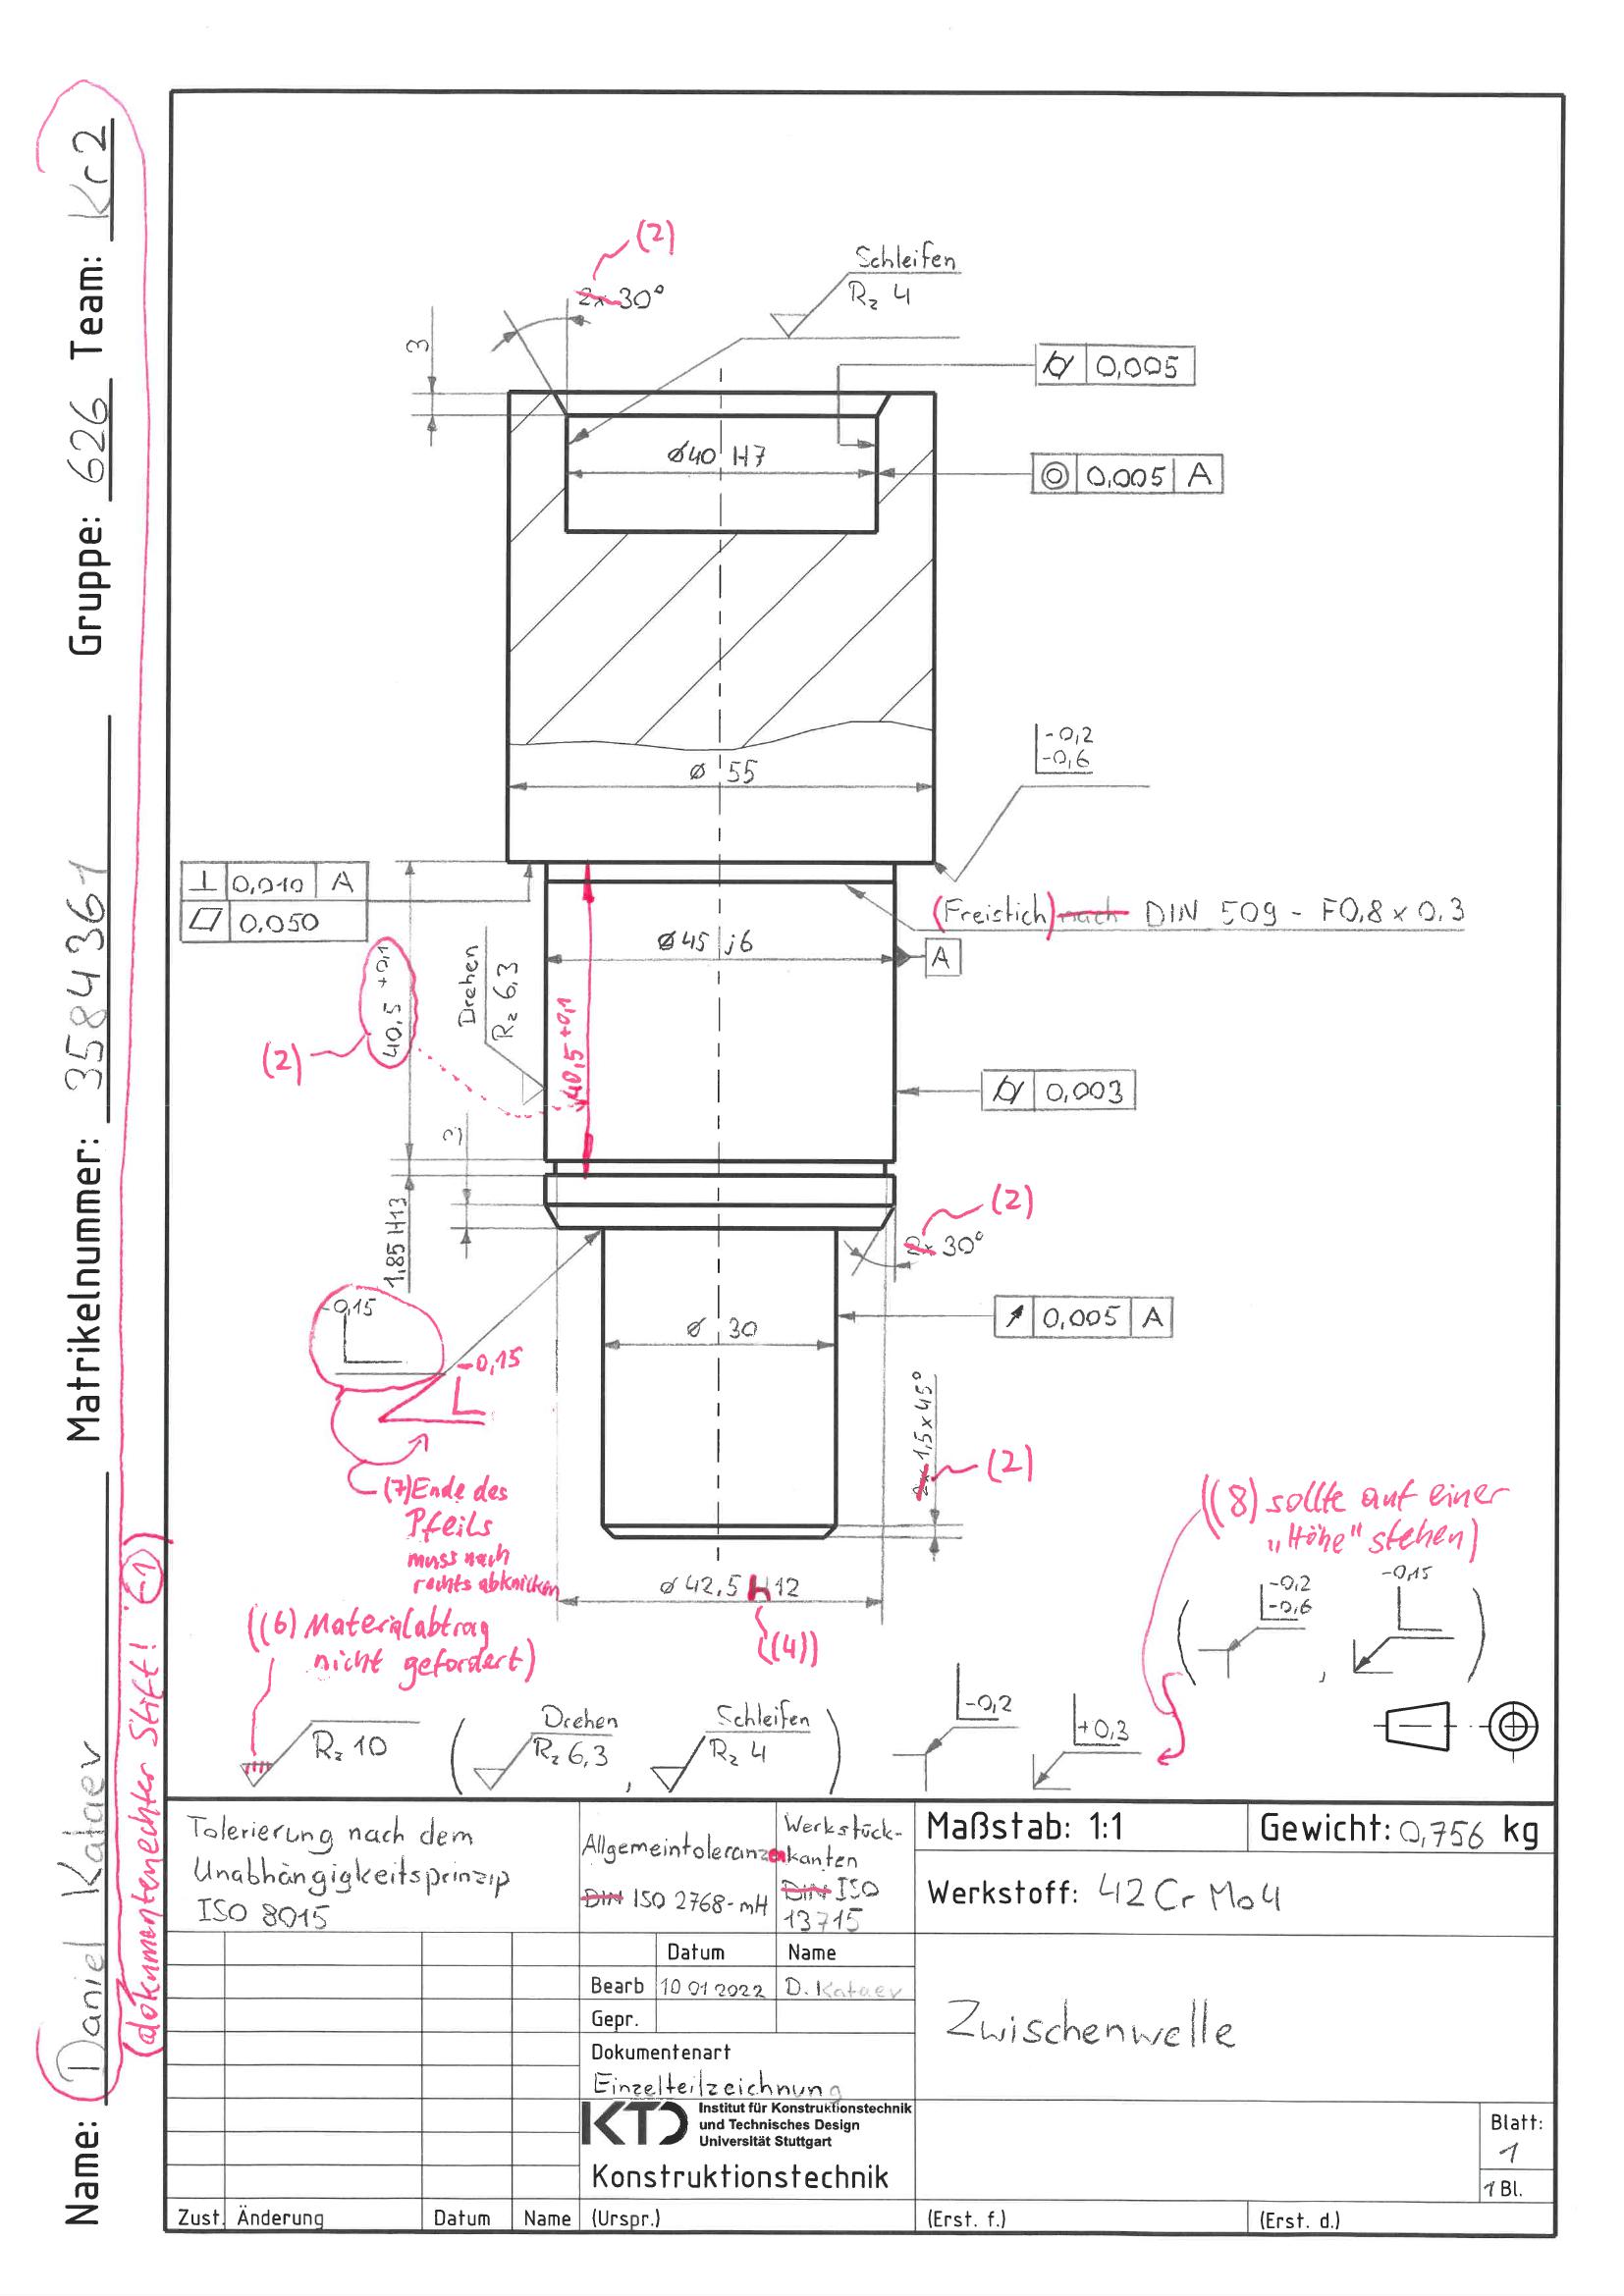 Name: Daniel Kataev
Matrikelnummer: 3584361
Gruppe: 626 Team: Kr2
(dokumentenechter Stift! (-1))
(2)
2x 30°
Schleifen
Rz 4
3
0,005
⌀40 H7
0,005 A
-0,2
-0,6
⌀ 55
⊥ 0,010 A
0,050
(Freistich) nach DIN 509 - F0,8 x 0,3
⌀45 j6
A
Drehen
Rz 6,3
40,5 +0,1
(2)
40,5 +0,1
0,003
3
1,85 H13
(2)
2x 30°
-0,15
0,005 A
⌀ 30
-0,15
2x 1,5 x 45°
(2)
(7) Ende des
Pfeils
muss nach
rechts abknicken
((8) sollte auf einer
„Höhe" stehen)
⌀ 42,5 h12
((4))
((6) Materialabtrag
nicht gefordert)
-0,2
-0,6
-0,15
,
Rz 10
Drehen
Rz 6,3
,
Schleifen
Rz 4
-0,2
+0,3
Tolerierung nach dem
Unabhängigkeitsprinzip
ISO 8015
Allgemeintoleranzen
DIN ISO 2768-mH
Werkstück-
kanten
DIN ISO
13715
Maßstab: 1:1
Gewicht: 0,756 kg
Werkstoff: 42CrMo4
Datum Name
Bearb 10 01 2022 D. Kataev
Gepr.
Dokumentenart
Einzelteilzeichnung
Zwischenwelle
KTD Institut für Konstruktionstechnik
und Technisches Design
Universität Stuttgart
Konstruktionstechnik
Blatt:
1
1 Bl.
Zust. Änderung Datum Name (Urspr.) (Erst. f.) (Erst. d.)